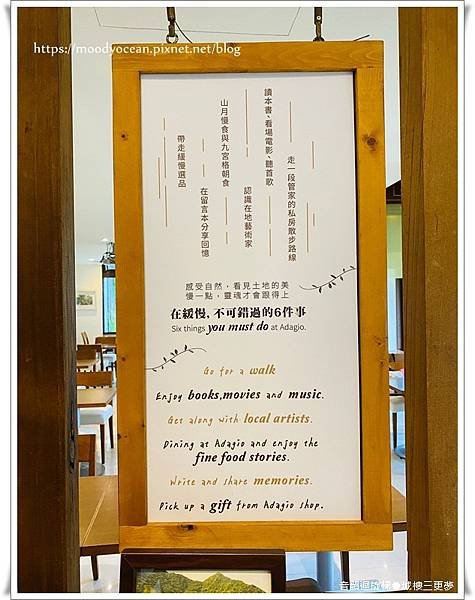 https://moodyocean.pixnet.net/blog
走一段管家的私房散步路線
讀本書、看場電影、聽首歌
認識在地藝術家
山月慢食與九宮格朝食
在留言本分享回憶
帶走緩慢選品
感受自然,看見土地的美
慢一點,靈魂才會跟得上
在緩慢,不可錯過的6件事
Six things you must do at Adagio.
Go for a walk
Enjoy books,movies and music.
Get along with local artists.
Dining at Adagio and enjoy the
fine food stories.
Write and share memories.
Pick up a gift from Adagio shop.
城樓三更夢